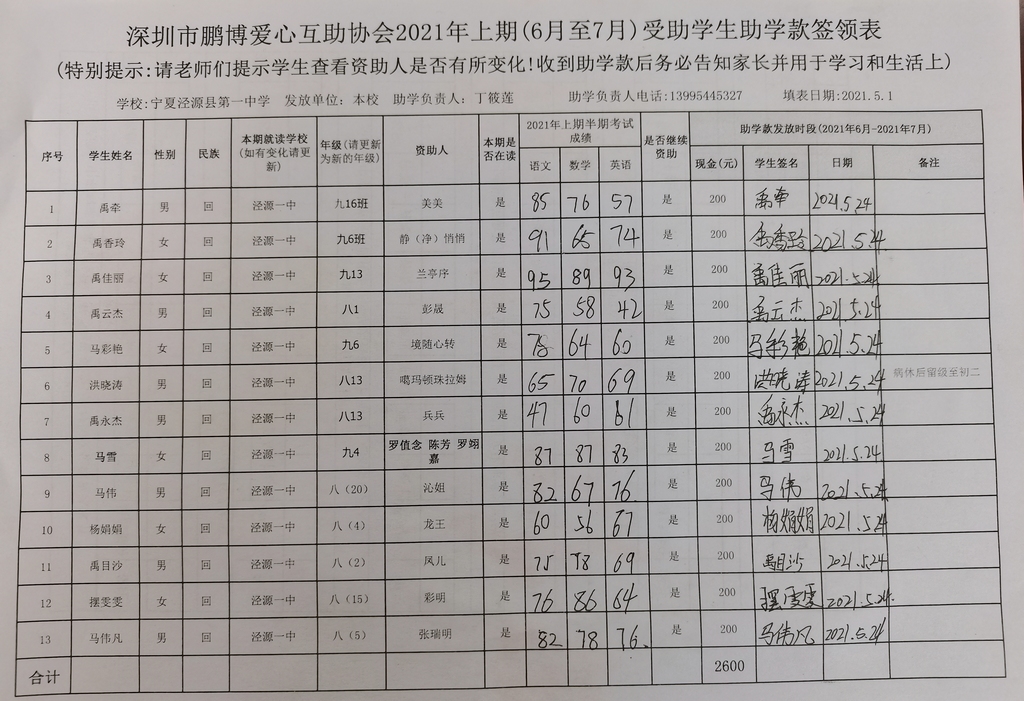 深圳市鹏博爱心互助协会2021年上期(6月至7月)受助学生助学款签领表
(特别提示:请老师们提示学生查看资助人是否有所变化!收到助学款后务必告知家长并用于学习和生活上)
学校:宁夏泾源县第一中学 发放单位: 本校 助学负责人: 丁筱莲 助学负责人电话:13995445327 填表日期:2021.5.1
序号 学生姓名 性别 民族 本期就读学校(如有变化请更新) 年级(请更新为新的年级) 资助人 本期是否在读 2021年上期半期考试成绩 语文 数学 英语 是否继续资助 助学款发放时段(2021年6月-2021年7月) 现金(元) 学生签名 日期 备注
1 禹牵 男 回 泾源一中 九16班 美美 是 85 76 57 是 200 禹牵 2021.5.24
2 禹香玲 女 回 泾源一中 九6班 静（净）悄悄 是 91 65 74 是 200 禹香玲 2021.5.24
3 禹佳丽 女 回 泾源一中 九13 兰亭序 是 95 89 93 是 200 禹佳丽 2021.5.24
4 禹云杰 男 回 泾源一中 八1 彭晟 是 75 58 42 是 200 禹云杰 2021.5.24
5 马彩艳 女 回 泾源一中 九6 境随心转 是 78 64 60 是 200 马彩艳 2021.5.24
6 洪晓涛 男 回 泾源一中 八13 噶玛顿珠拉姆 是 65 70 69 是 200 洪晓涛 2021.5.24 病休后留级至初二
7 禹永杰 男 回 泾源一中 八13 兵兵 是 47 60 61 是 200 禹永杰 2021.5.24
8 马雪 女 回 泾源一中 九4 罗值念 陈芳 罗翊嘉 是 87 87 83 是 200 马雪 2021.5.24
9 马伟 男 回 泾源一中 八（20） 沁姐 是 82 67 76. 是 200 马伟 2021.5.24
10 杨娟娟 女 回 泾源一中 八（4） 龙王 是 60 56 67 是 200 杨娟娟 2021.5.24
11 禹目沙 男 回 泾源一中 八（2） 凤儿 是 75 78 69 是 200 禹目沙 2021.5.24
12 摆雯雯 女 回 泾源一中 八（15） 彩明 是 76 86 64 是 200 摆雯雯 2021.5.24.
13 马伟凡 男 回 泾源一中 八（5） 张瑞明 是 82 78 76. 是 200 马伟凡 2021.5.24
合计 2600